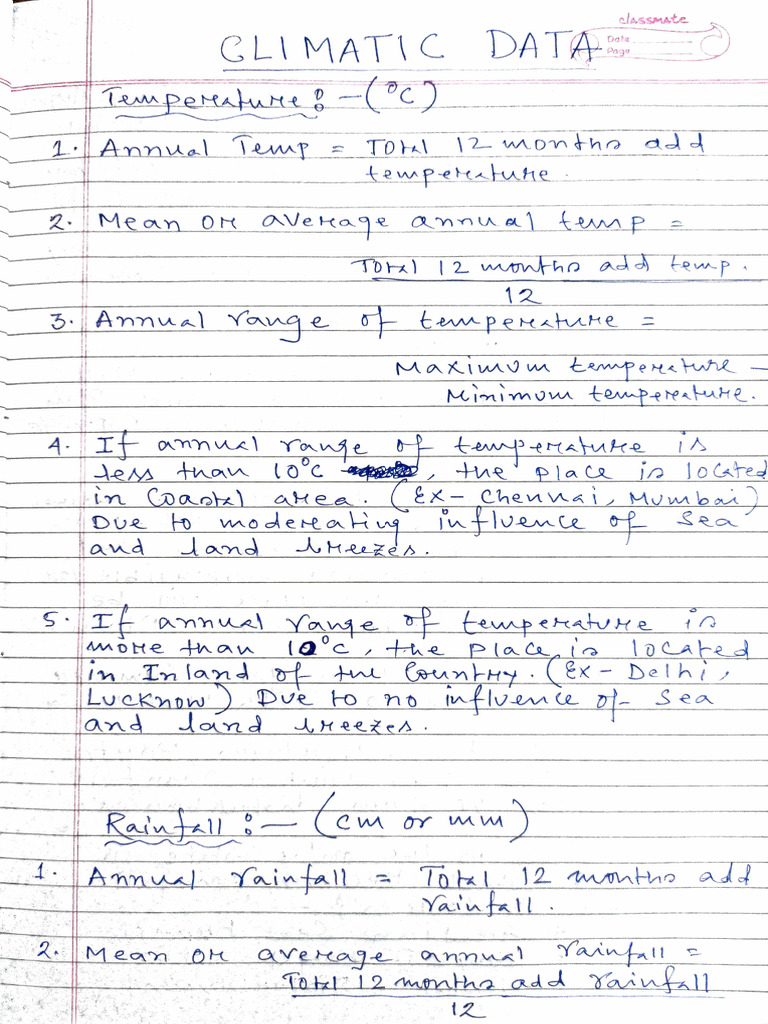 classmate
Date
Page
CLIMATIC DATA
Temperature :- (°C)
1. Annual Temp = Total 12 months add
temperature.
2. Mean or average annual temp =
Total 12 months add temp.
12
3. Annual range of temperature =
Maximum temperature –
Minimum temperature.
4. If annual range of temperature is
less than 10°C , the place is located
in Coastal area. (Ex- Chennai, Mumbai)
Due to moderating influence of Sea
and land breezes.
5. If annual range of temperature is
more than 10°C, the place is located
in Inland of the Country. (Ex- Delhi,
Lucknow) Due to no influence of Sea
and land breezes.
Rainfall :- (cm or mm)
1. Annual rainfall = Total 12 months add
rainfall.
2. Mean or average annual rainfall =
Total 12 months add rainfall
12